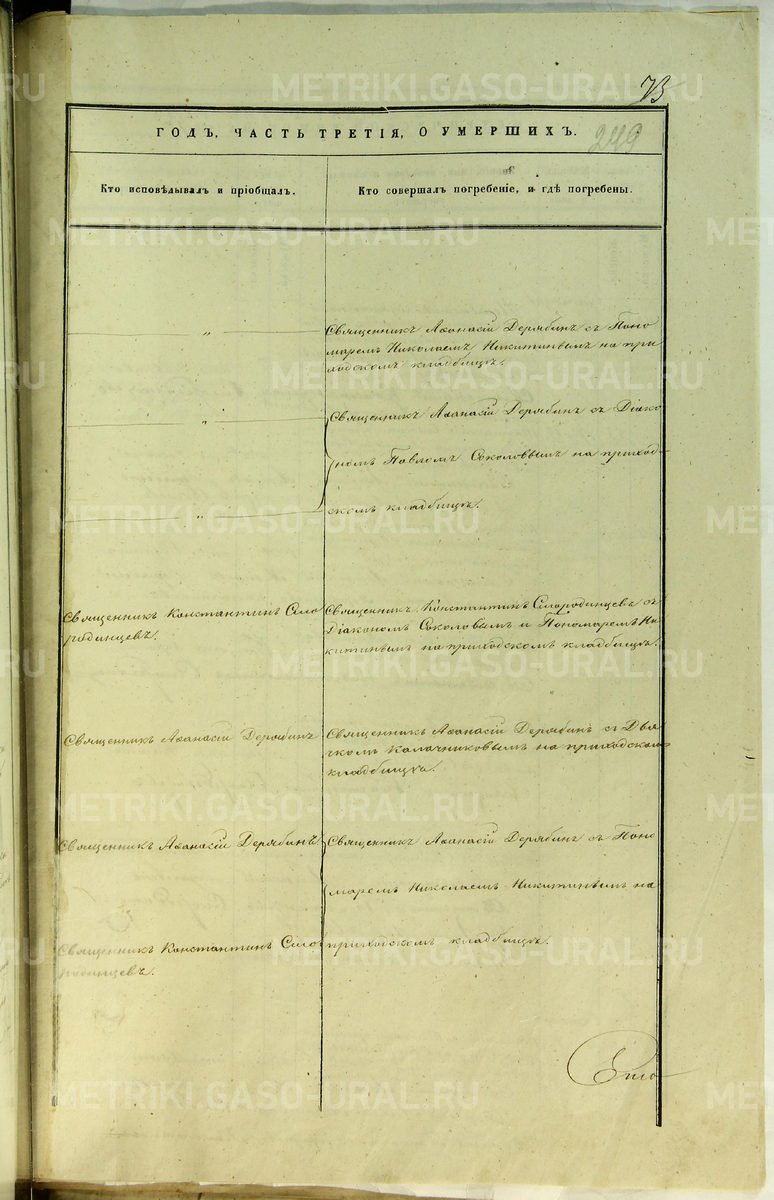 73
ГОДЪ, ЧАСТЬ ТРЕТІЯ, О УМЕРШИХЪ.
249
Кто исповѣдывалъ и пріобщалъ.
Кто совершалъ погребеніе, и гдѣ погребены.
„
Священникъ Аѳанасій Дерябинъ съ Поно
маремъ Николаемъ Никитинымъ на при
ходскомъ кладбищѣ.
„
Священникъ Аѳанасій Дерябинъ съ Діако
номъ Павломъ Соколовымъ на приход-
„
скомъ кладбищѣ.
Священникъ Константинъ
родинцевъ.
Священникъ Константинъ съ
Діакономъ Соколовымъ и Пономаремъ Ни
китинымъ на приходскомъ кладбищѣ.
Священникъ Аѳанасій Дерябинъ
Священникъ Аѳанасій Дерябинъ съ Дья
чкомъ Калачниковымъ на приходскомъ
кладбищѣ.
Священникъ Аѳанасій Дерябинъ
Священникъ Аѳанасій Дерябинъ съ Поно
маремъ Николаемъ Никитинымъ на
приходскомъ кладбищѣ.
Священникъ Константинъ
родинцевъ.
METRIKI.GASO-URAL.RU